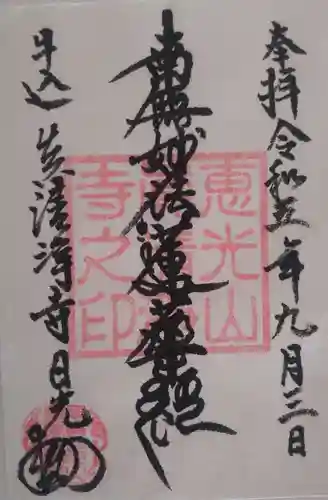 奉拝 令和五年九月三日
南無妙法蓮華経
牛込
清浄寺日光
恵光山
寺之印